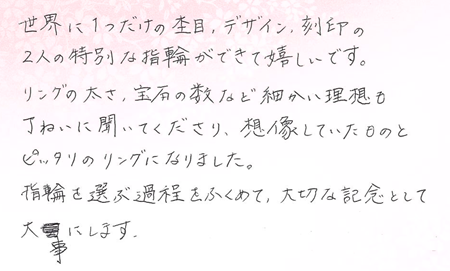 世界に1つだけの杢目,デザイン,刻印の
2人の特別な指輪ができて嬉しいです。
リングの太さ,宝石の数など細かい理想も
丁ねいに聞いてくださり、想像していたものと
ピッタリのリングになりました。
指輪を選ぶ過程をふくめて,大切な記念として
大事にします.